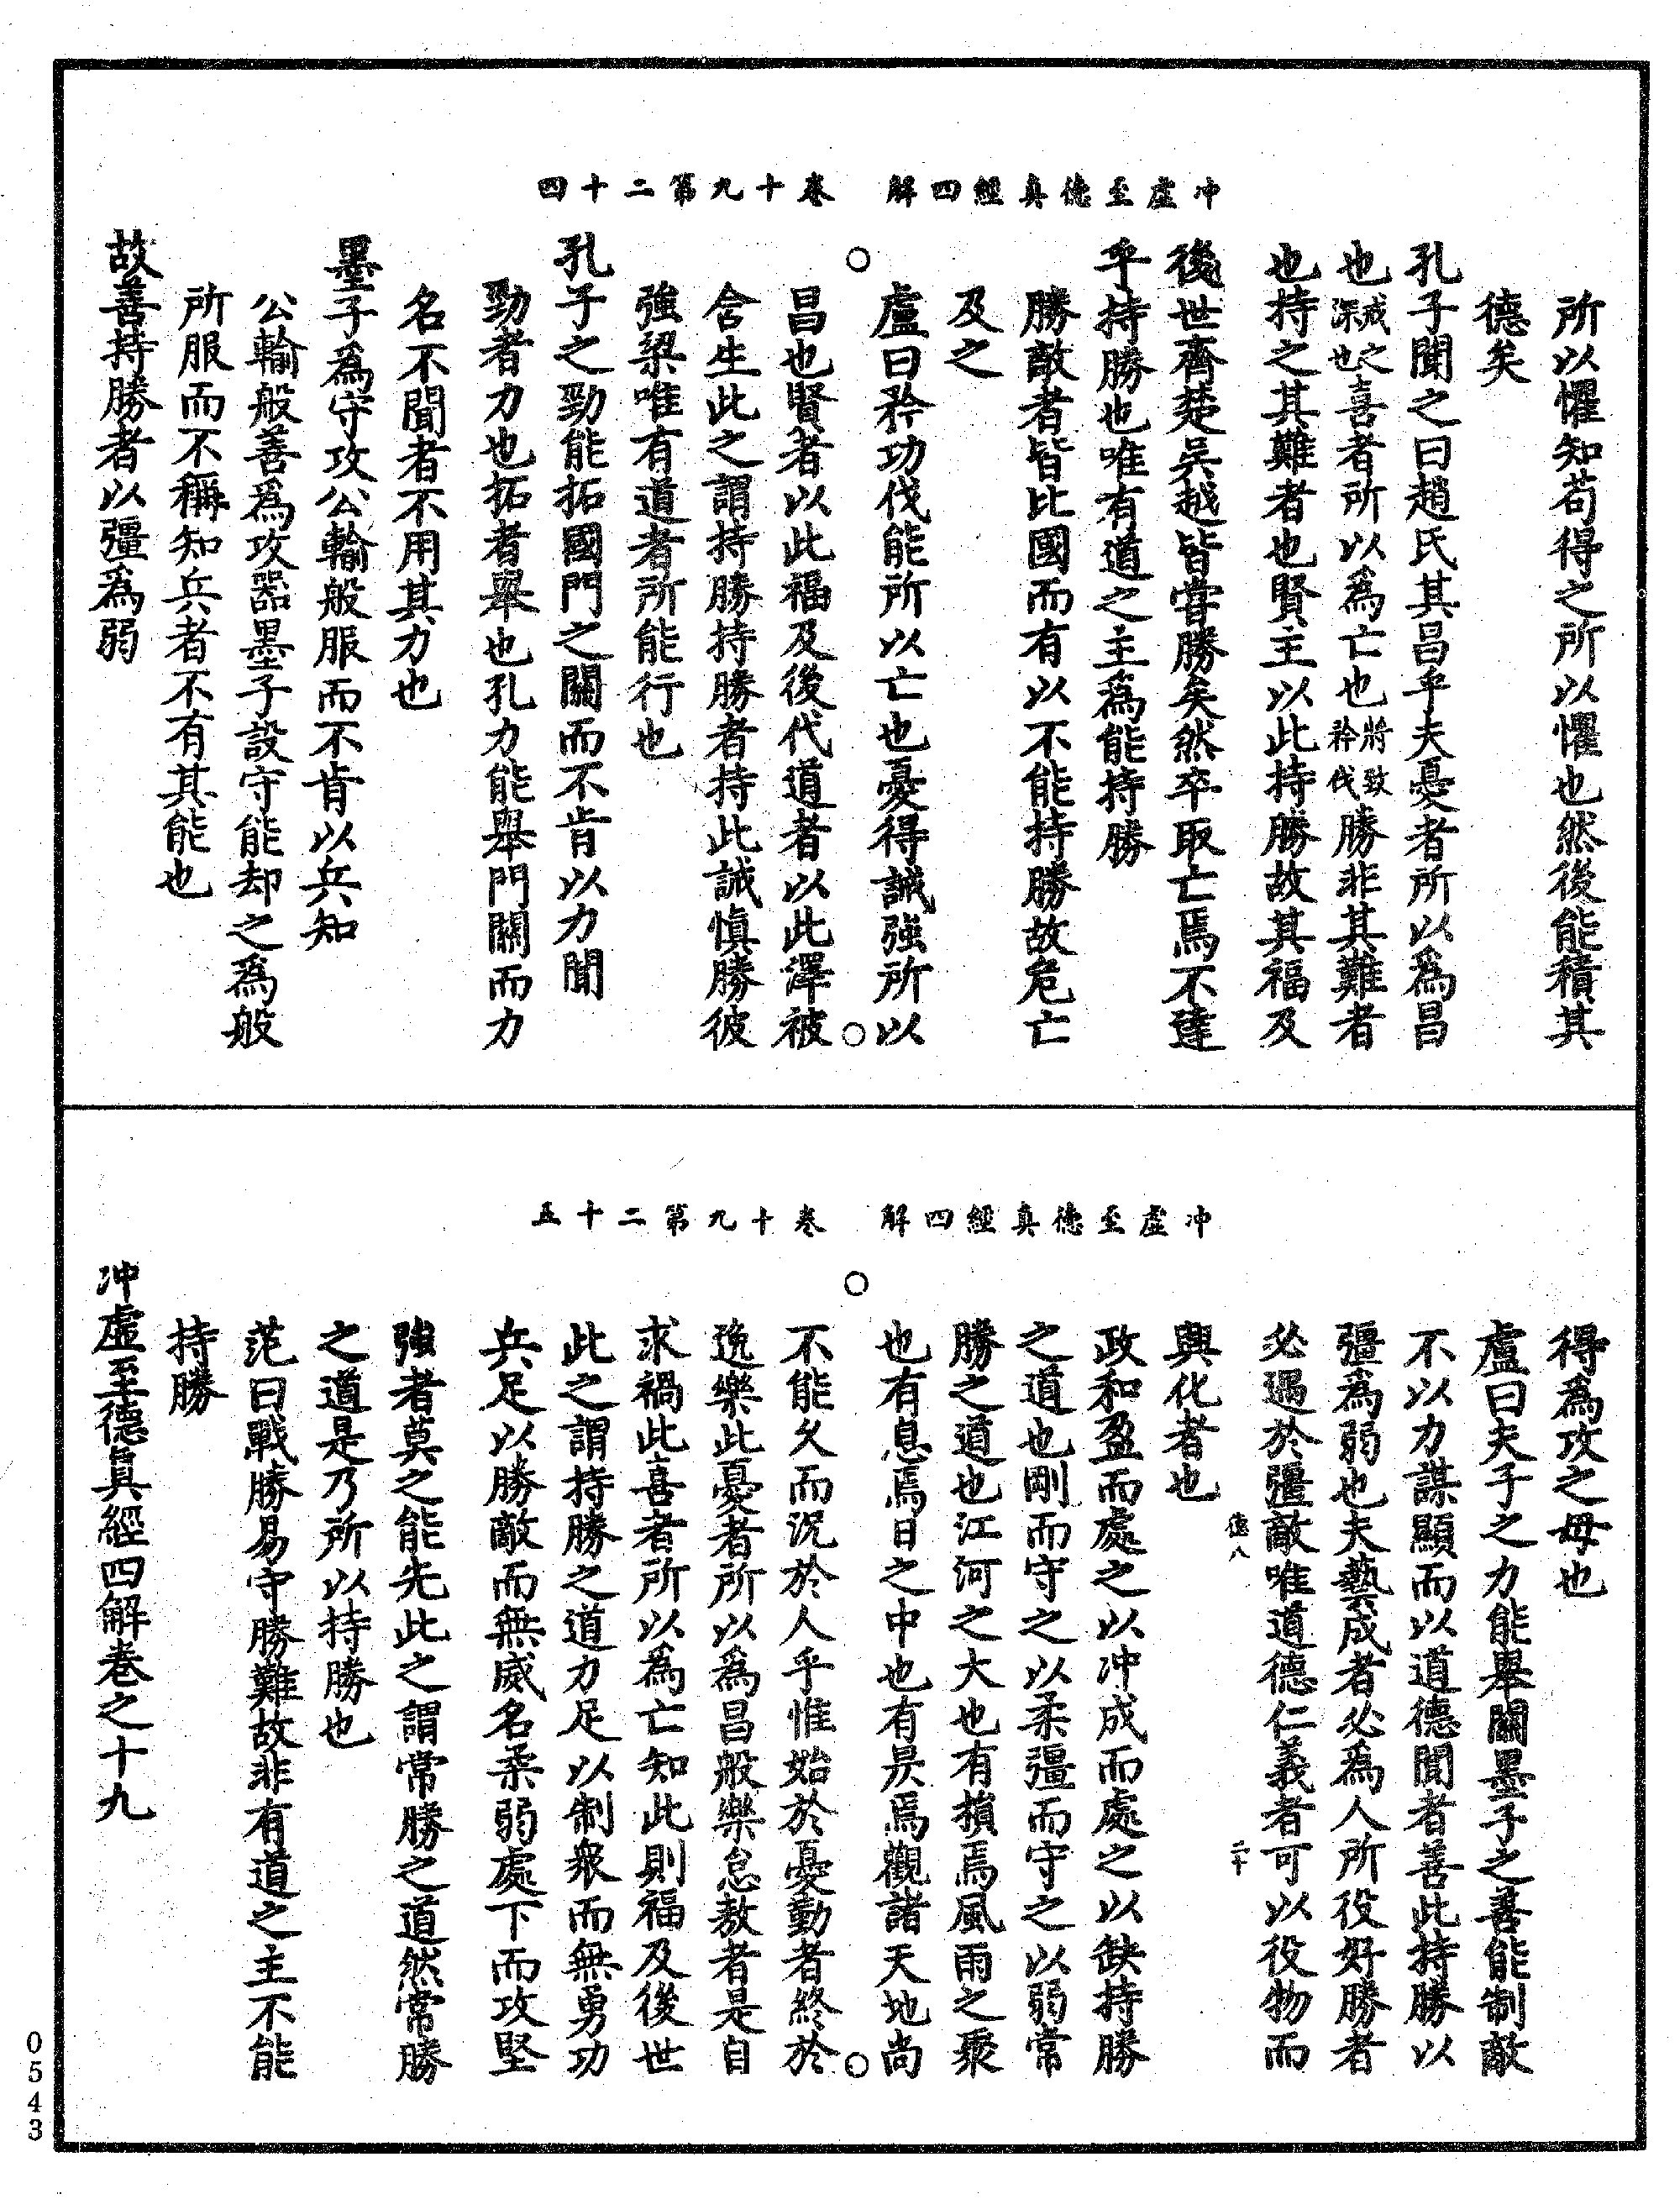 冲虛至德真經四解　卷十九第二十四
所以懼知苟得之所以懼也然後能積其
德矣
孔子聞之曰趙氏其昌乎夫憂者所以為昌
也戒之深也喜者所以為亡也將致矜伐勝非其難者
也持之其難者也賢主以此持勝故其福及
後世齊楚吳越皆嘗勝矣然卒取亡焉不達
乎持勝也唯有道之主為能持勝
勝敵者皆比國而有以不能持勝故危亡
及之
盧曰矜功伐能所以亡也憂得誡強所以
昌也賢者以此福及後代道者以此澤被
含生此之謂持勝持勝者持此誠慎勝彼
強梁唯有道者所能行也
孔子之勁能拓國門之關而不肯以力聞
勁者力也拓者舉也孔力能舉門關而力
名不聞者不用其力也
墨子為守攻公輸般服而不肯以兵知
公輸般善為攻器墨子設守能却之為般
所服而不稱知兵者不有其能也
故善持勝者以彊為弱
冲虛至德真經四解　卷十九第二十五
得為攻之母也
盧曰夫子之力能舉關墨子之善能制敵
不以力謀顯而以道德聞者善此持勝以
彊為弱也夫藝成者必為人所役好勝者
必遇於彊敵唯道德仁義者可以役物而
德八
二十
與化者也
政和盈而處之以冲成而處之以缺持勝
之道也剛而守之以柔彊而守之以弱常
勝之道也江河之大也有損焉風雨之聚
也有息焉日之中也有昃焉觀諸天地尚
不能久而況於人乎惟始於憂勤者終於
逸樂此憂者所以為昌般樂怠敖者是自
求禍此喜者所以為亡知此則福及後世
此之謂持勝之道力足以制衆而無勇功
兵足以勝敵而無威名柔弱處下而攻堅
強者莫之能先此之謂常勝之道然常勝
之道是乃所以持勝也
范曰戰勝易守勝難故非有道之主不能
持勝
冲虛至德真經四解卷之十九
0543